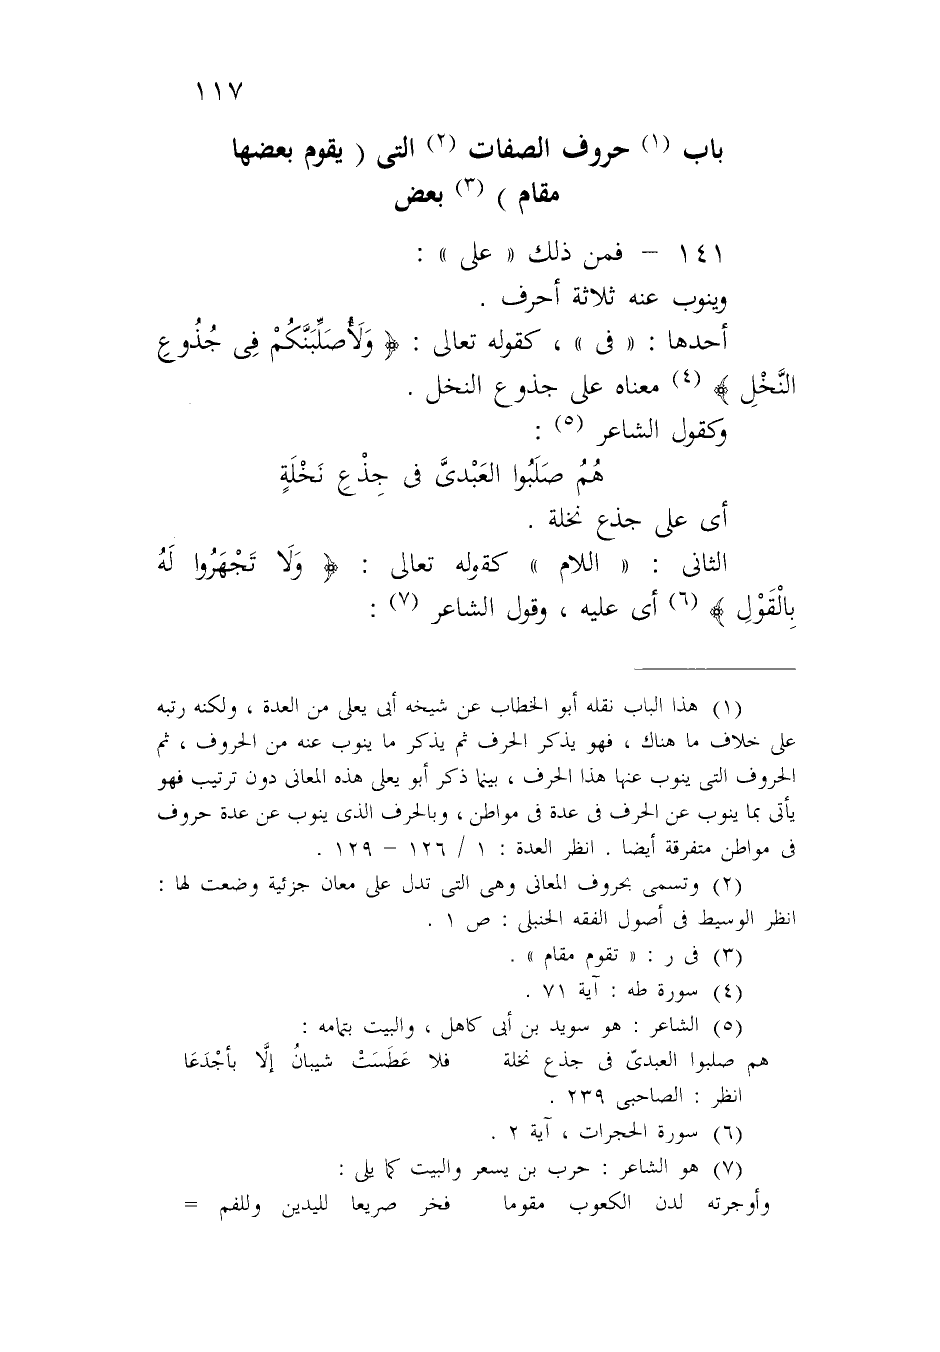 ١١٧
باب (١) حروف الصفات (٢) التى ( يقوم بعضها
مقام ) (٣) بعض
١٤١ – فمن ذلك « على » :
وينوب عنه ثلاثة أحرف .
أحدها : « فى » ، كقوله تعالى : ﴿ وَلَأُصَلِّبَنَّكُمْ فِى جُذُوعِ
النَّخْلِ ﴾ (٤) معناه على جذوع النخل .
وكقول الشاعر (٥) :
هُمُ صَلَبُوا العَبْدىَّ فى جِذْعِ نَخْلَةٍ
أى على جذع نخلة .
الثانى : « اللام » كقوله تعالى : ﴿ وَلَا تَجْهَرُوا لَهُ
بِالْقَوْلِ ﴾ (٦) أى عليه ، وقول الشاعر (٧) :
(١) هذا الباب نقله أبو الخطاب عن شيخه أبى يعلى من العدة ، ولكنه رتبه
على خلاف ما هناك ، فهو يذكر الحرف ثم يذكر ما ينوب عنه من الحروف ، ثم
الحروف التى ينوب عنها هذا الحرف ، بينما ذكر أبو يعلى هذه المعانى دون ترتيب فهو
يأتى بما ينوب عن الحرف فى عدة فى مواطن ، وبالحرف الذى ينوب عن عدة حروف
فى مواطن متفرقة أيضا . انظر العدة : ١ / ١٢٦ – ١٢٩ .
(٢) وتسمى بحروف المعانى وهى التى تدل على معان جزئية وضعت لها :
انظر الوسيط فى أصول الفقه الحنبلى : ص ١ .
(٣) فى ر : « تقوم مقام » .
(٤) سورة طه : آية ٧١ .
(٥) الشاعر : هو سويد بن أبى كاهل ، والبيت بتمامه :
هم صلبوا العبدىّ فى جذع نخلة فلا عَطَسَتْ شيبانُ إلَّا بأجْدَعَا
انظر : الصاحبى ٢٣٩ .
(٦) سورة الحجرات ، آية ٢ .
(٧) هو الشاعر : حرب بن يسعر والبيت كما يلى :
وأوجرته لدن الكعوب مقوما فخر صريعا لليدين وللفم =